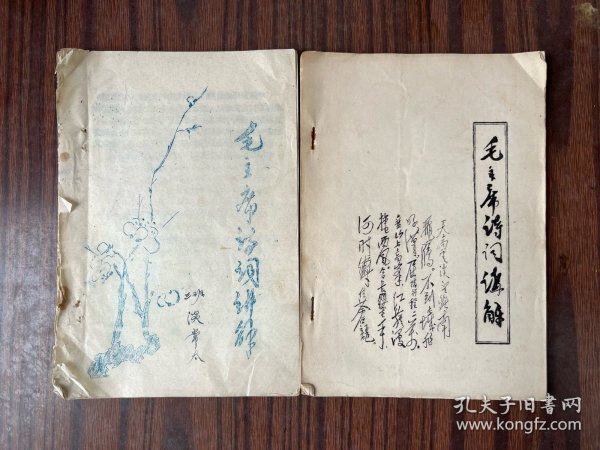 毛主席诗词讲解
三班
毛主席诗词讲解
天高云淡望断南
雁飞。不到长城非
好汉,屈指行程二万。
六盘山上高峰,红旗漫
卷西风今日长缨在手
何时缚住苍龙
孔夫子旧书网
www.kongfz.com